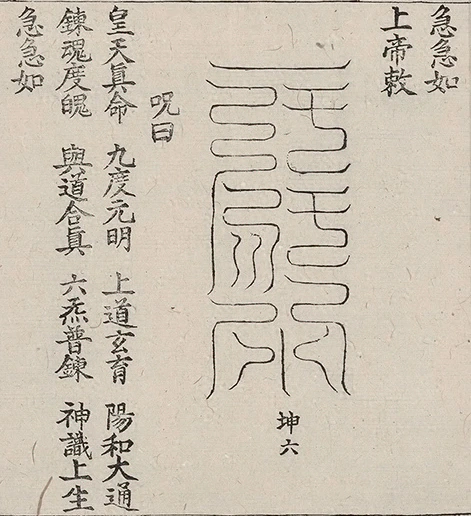 急急如
上帝敕
坤六
呪曰
皇天眞命 九度元明 上道玄育 陽和大通
鍊魂度魄 與道合眞 六炁普鍊 神識上生
急急如